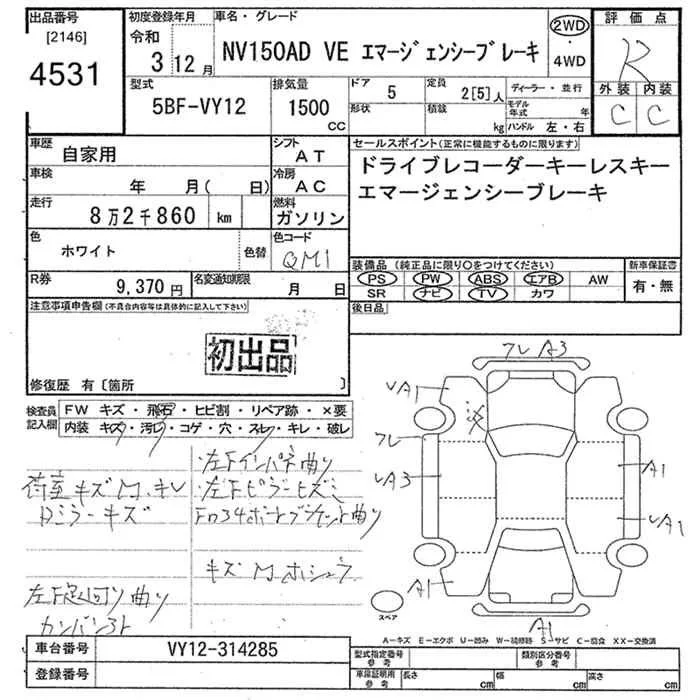 出品番号
[2146]
4531
初度登録年月
令和
3 12月
車名・グレード
NV150AD VE エマージェンシーブレーキ
2WD
・
4WD
評価点
R
外装 内装
C C
型式
5BF-VY12
排気量
1500
CC
ドア
5
定員
2[5]人
ディーラー・並行
形状
積載
kg
モデル年式 年
ハンドル 左・右
車歴
自家用
シフト
AT
セールスポイント(正常に機能するものに限ります)
ドライブレコーダーキーレスキー
エマージェンシーブレーキ
車検
年 月( 日)
冷房
AC
走行
8万2千860 km
燃料
ガソリン
色
ホワイト
色替
色コード
QM1
装備品(純正品に限り○をつけてください)
新車保証書
PS PW ABS エアB AW
有・無
SR ナビ TV カワ
R券
9,370円
名変通知期限
月 日
後日品
注意事項申告欄(不具合内容等は具体的に記入して下さい)
初出品
修復歴 有〔箇所 〕
検査員
記入欄
FW キズ・飛石・ヒビ割・リペア跡・×要
内装 キズ・汚レ・コゲ・穴・スレ・キレ・破レ
左Fインパネ曲り
荷室キズM.キレ
左Fピラーヒズミ
Rミラーキズ
キズMホシュウ
左F足回り曲り
カンバン3ト
フレ A3
A1
フレ
A3
A1
A1
A1
A1
スペア
A-キズ E-エクボ U-凹み W-補修跡 S-サビ C-腐食 XX-交換済
車台番号
VY12-314285
登録番号
型式指定番号
参考
類別区分番号
参考
車庫証明用
参考
長さ cm
幅 cm
高さ cm